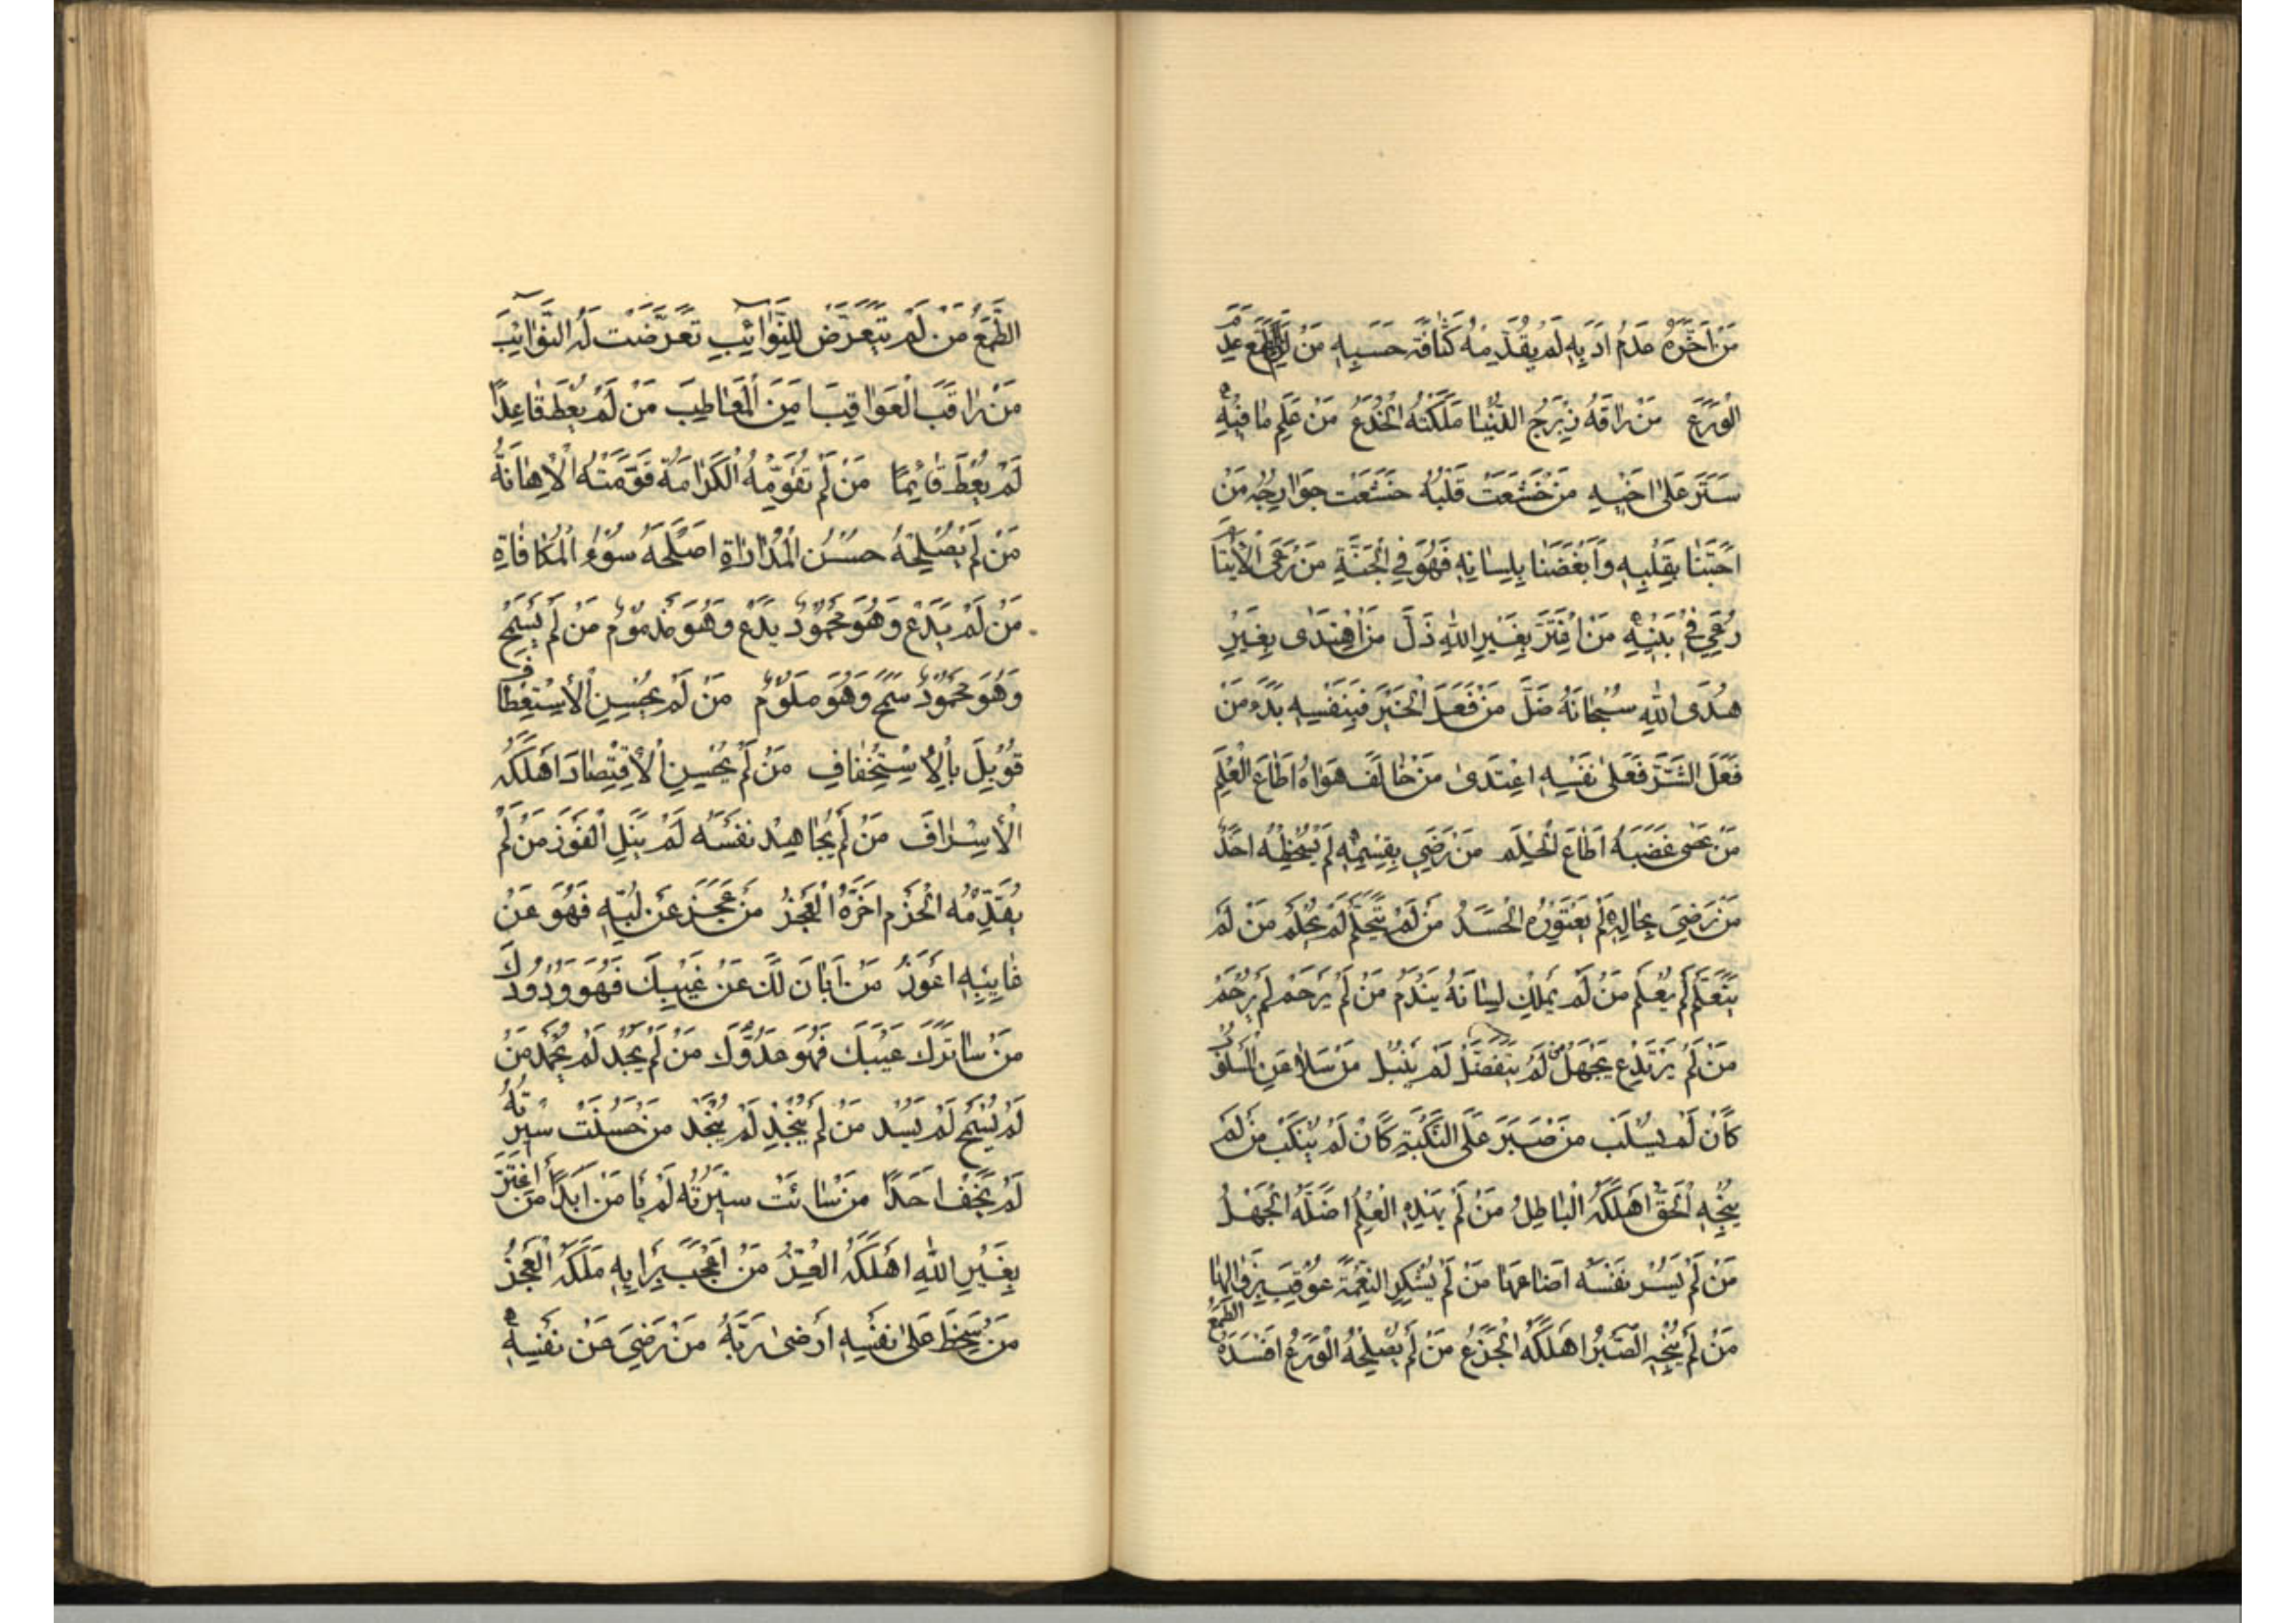 مَنْ اَخَّرَهُ عَدَمُ اَدَبِهِ لَمْ يُقَدِّمْهُ كَثَافَةُ حَسَبِهِ مَنْ لَزِمَ الطَّمَعَ عَدِمَ
الْوَرَعَ مَنْ رَاقَهُ زِبْرِجُ الدُّنْيَا مَلَكَتْهُ الْخُدَعُ مَنْ عَلِمَ مَا فِيهِ
سَتَرَ عَلٰى اَخِيهِ مَنْ خَشَعَتْ قَلْبُهُ خَشَعَتْ جَوَارِحُهُ مَنْ
اَحَبَّنَا بِقَلْبِهِ وَاَبْغَضَنَا بِلِسَانِهِ فَهُوَ فِي الْجَنَّةِ مَنْ رَعَى الْاَيْتَامَ
رُعِيَ فِي بَنِيهِ مَنْ اعْتَزَّ بِغَيْرِ اللهِ ذَلَّ مَنْ اهْتَدٰى بِغَيْرِ
هُدَى اللهِ سُبْحَانَهُ ضَلَّ مَنْ فَعَلَ الْخَيْرَ فَبِنَفْسِهِ بَدَءَ مَنْ
فَعَلَ الشَّرَّ فَعَلٰى نَفْسِهِ اعْتَدٰى مَنْ خَالَفَ هَوَاهُ اَطَاعَ الْعِلْمَ
مَنْ عَصٰى غَضَبَهُ اَطَاعَ الْحِلْمَ مَنْ رَضِيَ بِقِسْمِهِ لَمْ يُسْخِطْهُ اَحَدٌ
مَنْ رَضِيَ بِحَالِهِ لَمْ يَعْتَوِرْهُ الْحَسَدُ مَنْ لَمْ يَتَحَلَّمْ لَمْ يَحْلُمْ مَنْ لَمْ
يَتَعَلَّمْ لَمْ يَعْلَمْ مَنْ لَمْ يَمْلِكْ لِسَانَهُ يَنْدَمْ مَنْ لَمْ يَرْحَمْ لَمْ يُرْحَمْ
مَنْ لَمْ يَرْتَدِعْ يَجْهَلْ مَنْ لَمْ يَتَفَضَّلْ لَمْ يَنْبُلْ مَنْ سَلَا عَنِ الْمَسْلُوبِ
كَاَنْ لَمْ يُسْلَبْ مَنْ صَبَرَ عَلَى النَّكْبَةِ كَاَنْ لَمْ يُنْكَبْ مَنْ لَمْ
يُنْجِهِ الْحَقُّ اَهْلَكَهُ الْبَاطِلُ مَنْ لَمْ يَهْدِهِ الْعِلْمُ اَضَلَّهُ الْجَهْلُ
مَنْ لَمْ يَسُسْ نَفْسَهُ اَضَاعَهَا مَنْ لَمْ يَشْكُرِ النِّعْمَةَ عُوقِبَ بِزَوَالِهَا
مَنْ لَمْ يُنْجِهِ الصَّبْرُ اَهْلَكَهُ الْجَزَعُ مَنْ لَمْ يُصْلِحْهُ الْوَرَعُ اَفْسَدَهُ الطَّمَعُ
الطَّمَعُ مَنْ لَمْ يَتَعَرَّضْ لِلنَّوَائِبِ تَعَرَّضَتْ لَهُ النَّوَائِبُ
مَنْ رَاقَبَ الْعَوَاقِبَ اَمِنَ الْمَعَاطِبَ مَنْ لَمْ يُعْطَ قَاعِدًا
لَمْ يُعْطَ قَائِمًا مَنْ لَمْ تُقَوِّمْهُ الْكَرَامَةُ قَوَّمَتْهُ الْاِهَانَةُ
مَنْ لَمْ يُصْلِحْهُ حُسْنُ الْمُدَارَاةِ اَصْلَحَهُ سُوْءُ الْمُكَافَاةِ
مَنْ لَمْ يَدَعْ وَهُوَ مَحْمُودٌ يَدَعْ وَهُوَ مَذْمُومٌ مَنْ لَمْ يَسْمَحْ
وَهُوَ مَحْمُودٌ سَمَحَ وَهُوَ مَلُومٌ مَنْ لَمْ يُحْسِنِ الْاِسْتِعْطَافَ
قُوبِلَ بِالْاِسْتِخْفَافِ مَنْ لَمْ يُحْسِنِ الْاِقْتِصَادَ اَهْلَكَهُ
الْاِسْرَافُ مَنْ لَمْ يُجَاهِدْ نَفْسَهُ لَمْ يَنَلِ الْفَوْزَ مَنْ لَمْ
يُقَدِّمْهُ الْحَزْمُ اَخَّرَهُ الْعَجْزُ مَنْ عَجَزَ عَنْ لُبِّهِ فَهُوَ عَنْ
غَايِبِهِ اَعْوَزُ مَنْ اَبَانَ لَكَ عَنْ عَيْبِكَ فَهُوَ وَدُودُكَ
مَنْ سَاتَرَكَ عَيْبَكَ فَهُوَ عَدُوُّكَ مَنْ لَمْ يَجُدْ لَمْ يُحْمَدْ مَنْ
لَمْ يَسْمَحْ لَمْ يَسُدْ مَنْ لَمْ يُنْجِدْ لَمْ يُنْجَدْ مَنْ حَسُنَتْ سِيْرَتُهُ
لَمْ يَخَفْ اَحَدًا مَنْ سَائَتْ سِيْرَتُهُ لَمْ يَاْمَنْ اَبَدًا مَنِ اعْتَزَّ
بِغَيْرِ اللهِ اَهْلَكَهُ الْعِزُّ مَنْ اُعْجِبَ بِرَاْيِهِ مَلَكَهُ الْعَجْزُ
مَنْ سَخِطَ عَلٰى نَفْسِهِ اَرْضٰى رَبَّهُ مَنْ رَضِيَ عَنْ نَفْسِهِ